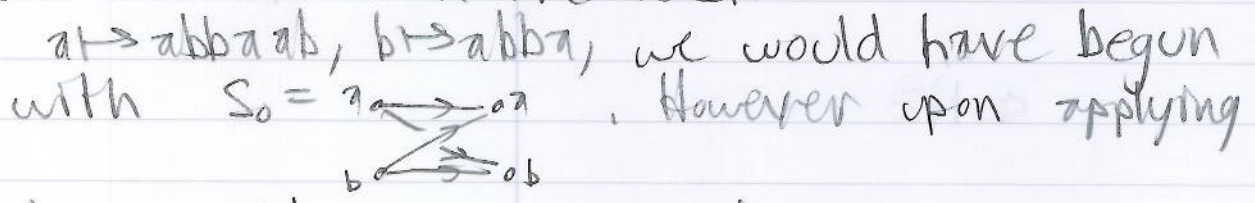 a ↦ abbaab, b ↦ abba, we would have begun
with S₀ = a a . However upon applying
b b